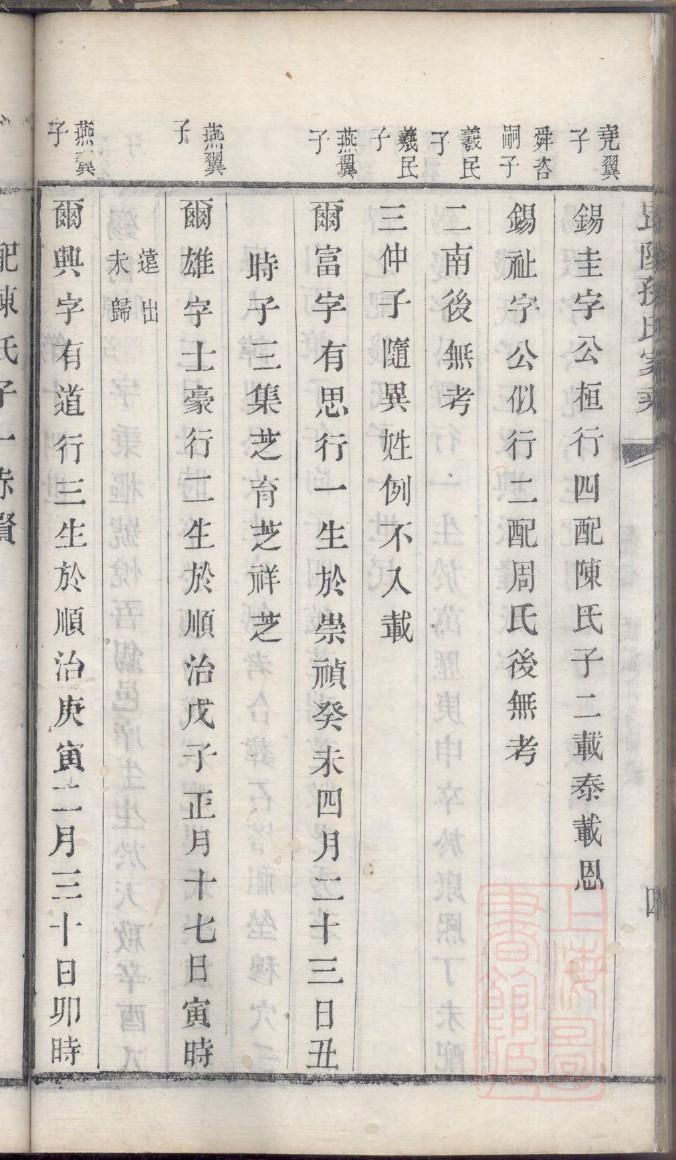 孫氏家乘
四
堯翼子
錫圭字公桓行四配陳氏子二載泰載恩
舜咨嗣子
錫祉字公似行二配周氏後無考
羲民子
二南後無考
羲民子
三仲子隨異姓例不入載
燕翼子
爾富字有思行一生於崇禎癸未四月二十三日丑
時子三集芝育芝祥芝
燕翼子
爾雄字士豪行二生於順治戊子正月十七日寅時
遠出未歸
燕翼子
爾興字有道行三生於順治庚寅二月三十日卯時
配陳氏子一
上海圖書館藏